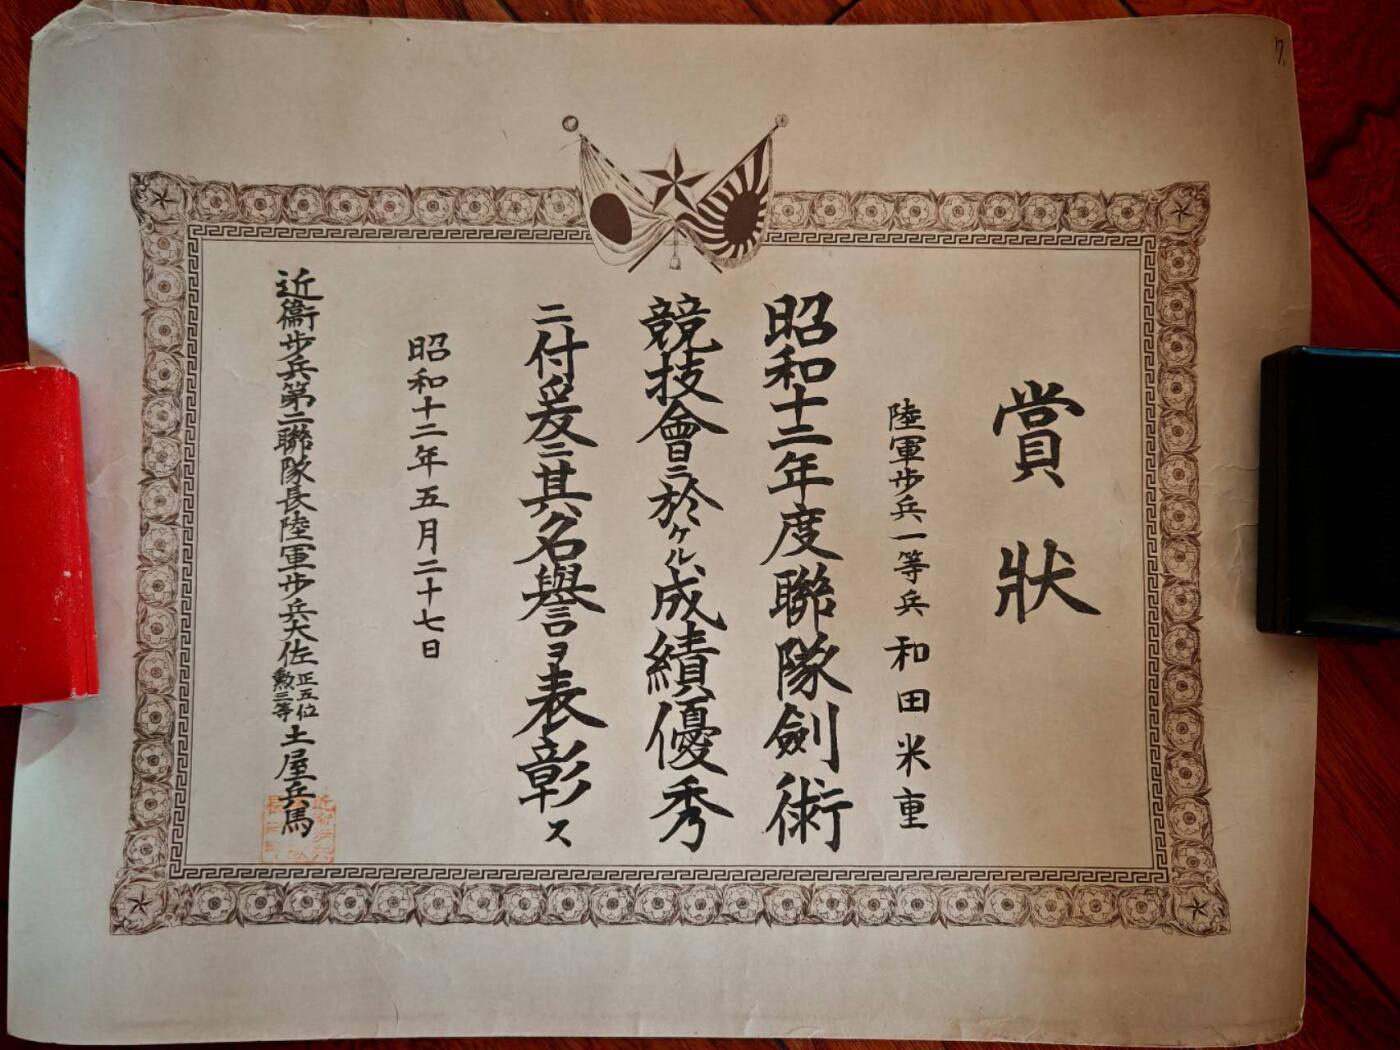 賞狀
陸軍步兵一等兵 和田米重
昭和十二年度聯隊劍術
競技會ニ於ケル成績優秀
ニ付爰ニ其名譽ヲ表彰ス
昭和十二年五月二十七日
近衞步兵第二聯隊長陸軍步兵大佐 正五位 勲三等 土屋兵馬